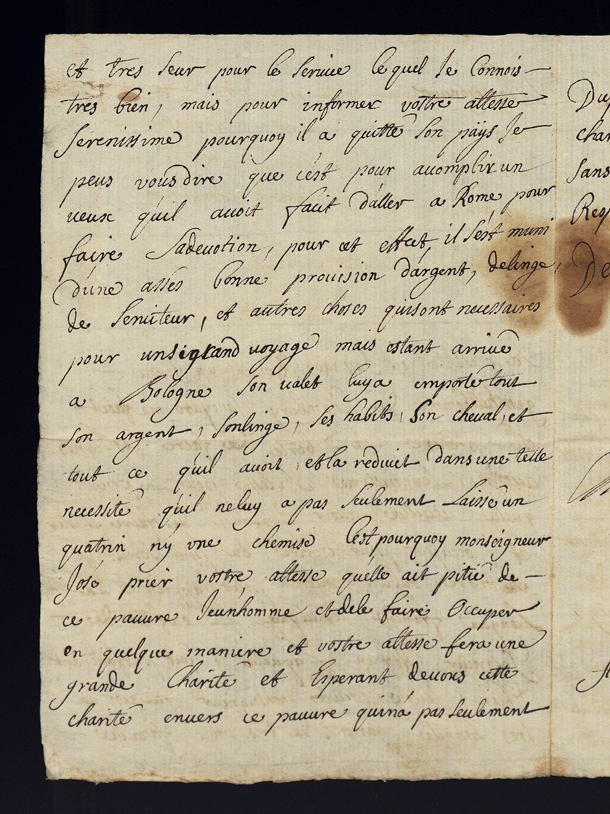 et tres seur pour le seruice lequel Je Connois —
tres bien, mais pour informer vostre altesse
Sérenissime pourquoy il a quitté son päys Je
peus vousdire que cést pour acomplir un
ueux quil auoit faiit d'aller a Rome pour
faire sadeuotion, pour cet effect, il s'est muni
d'une asses bonne prouision d'argent, delinge,
de Seruiteur, et autres choses quisont necessaires
pour unsigrand voyage mais estant arriué
a Bologne son valet luya emporté tout
son argent, sonlinge, ses habits, Son cheval, et
tout ce quil auoit, etla reduit dans une telle
necessité quil neluy apas seulement Laissé un
quatrin ny vne chemise C'est pourquoy monseigneur
José prier vostre altesse quelle ait pitié de —
ce pauure Jeunhomme et dele faire Occuper
en quelque maniere et vostre altesse fera une
grande Charité et Esperant deuous cette
charité enuers ce pauure quina pas seulement
Du
char
sans
Resp
De